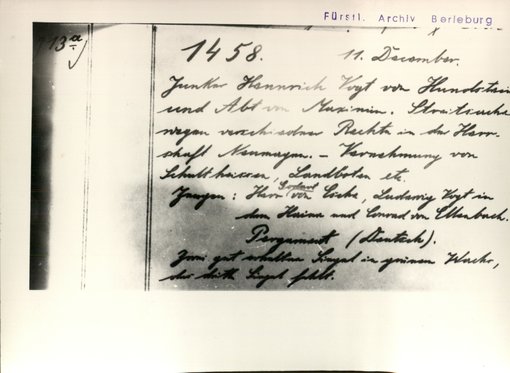 Fürstl. Archiv Berleburg
13a
1458. 11. December.
Junker Hennrich Vogt von Hundstein
und Abt von Maximin. Streitsache
wegen verschiedner Rechte in der Herr-
schaft Neumagen. – Vernehmung von
Schultheissen, Landboten etc.
Zeugen: Herr Godart von Esche, Ludwig Vogt in
dem Haine und Conrad von Ellenbach.
Pergament (Deutsch).
Zwei gut erhaltene Siegel in grünem Wachs,
der dritte Siegel fehlt.